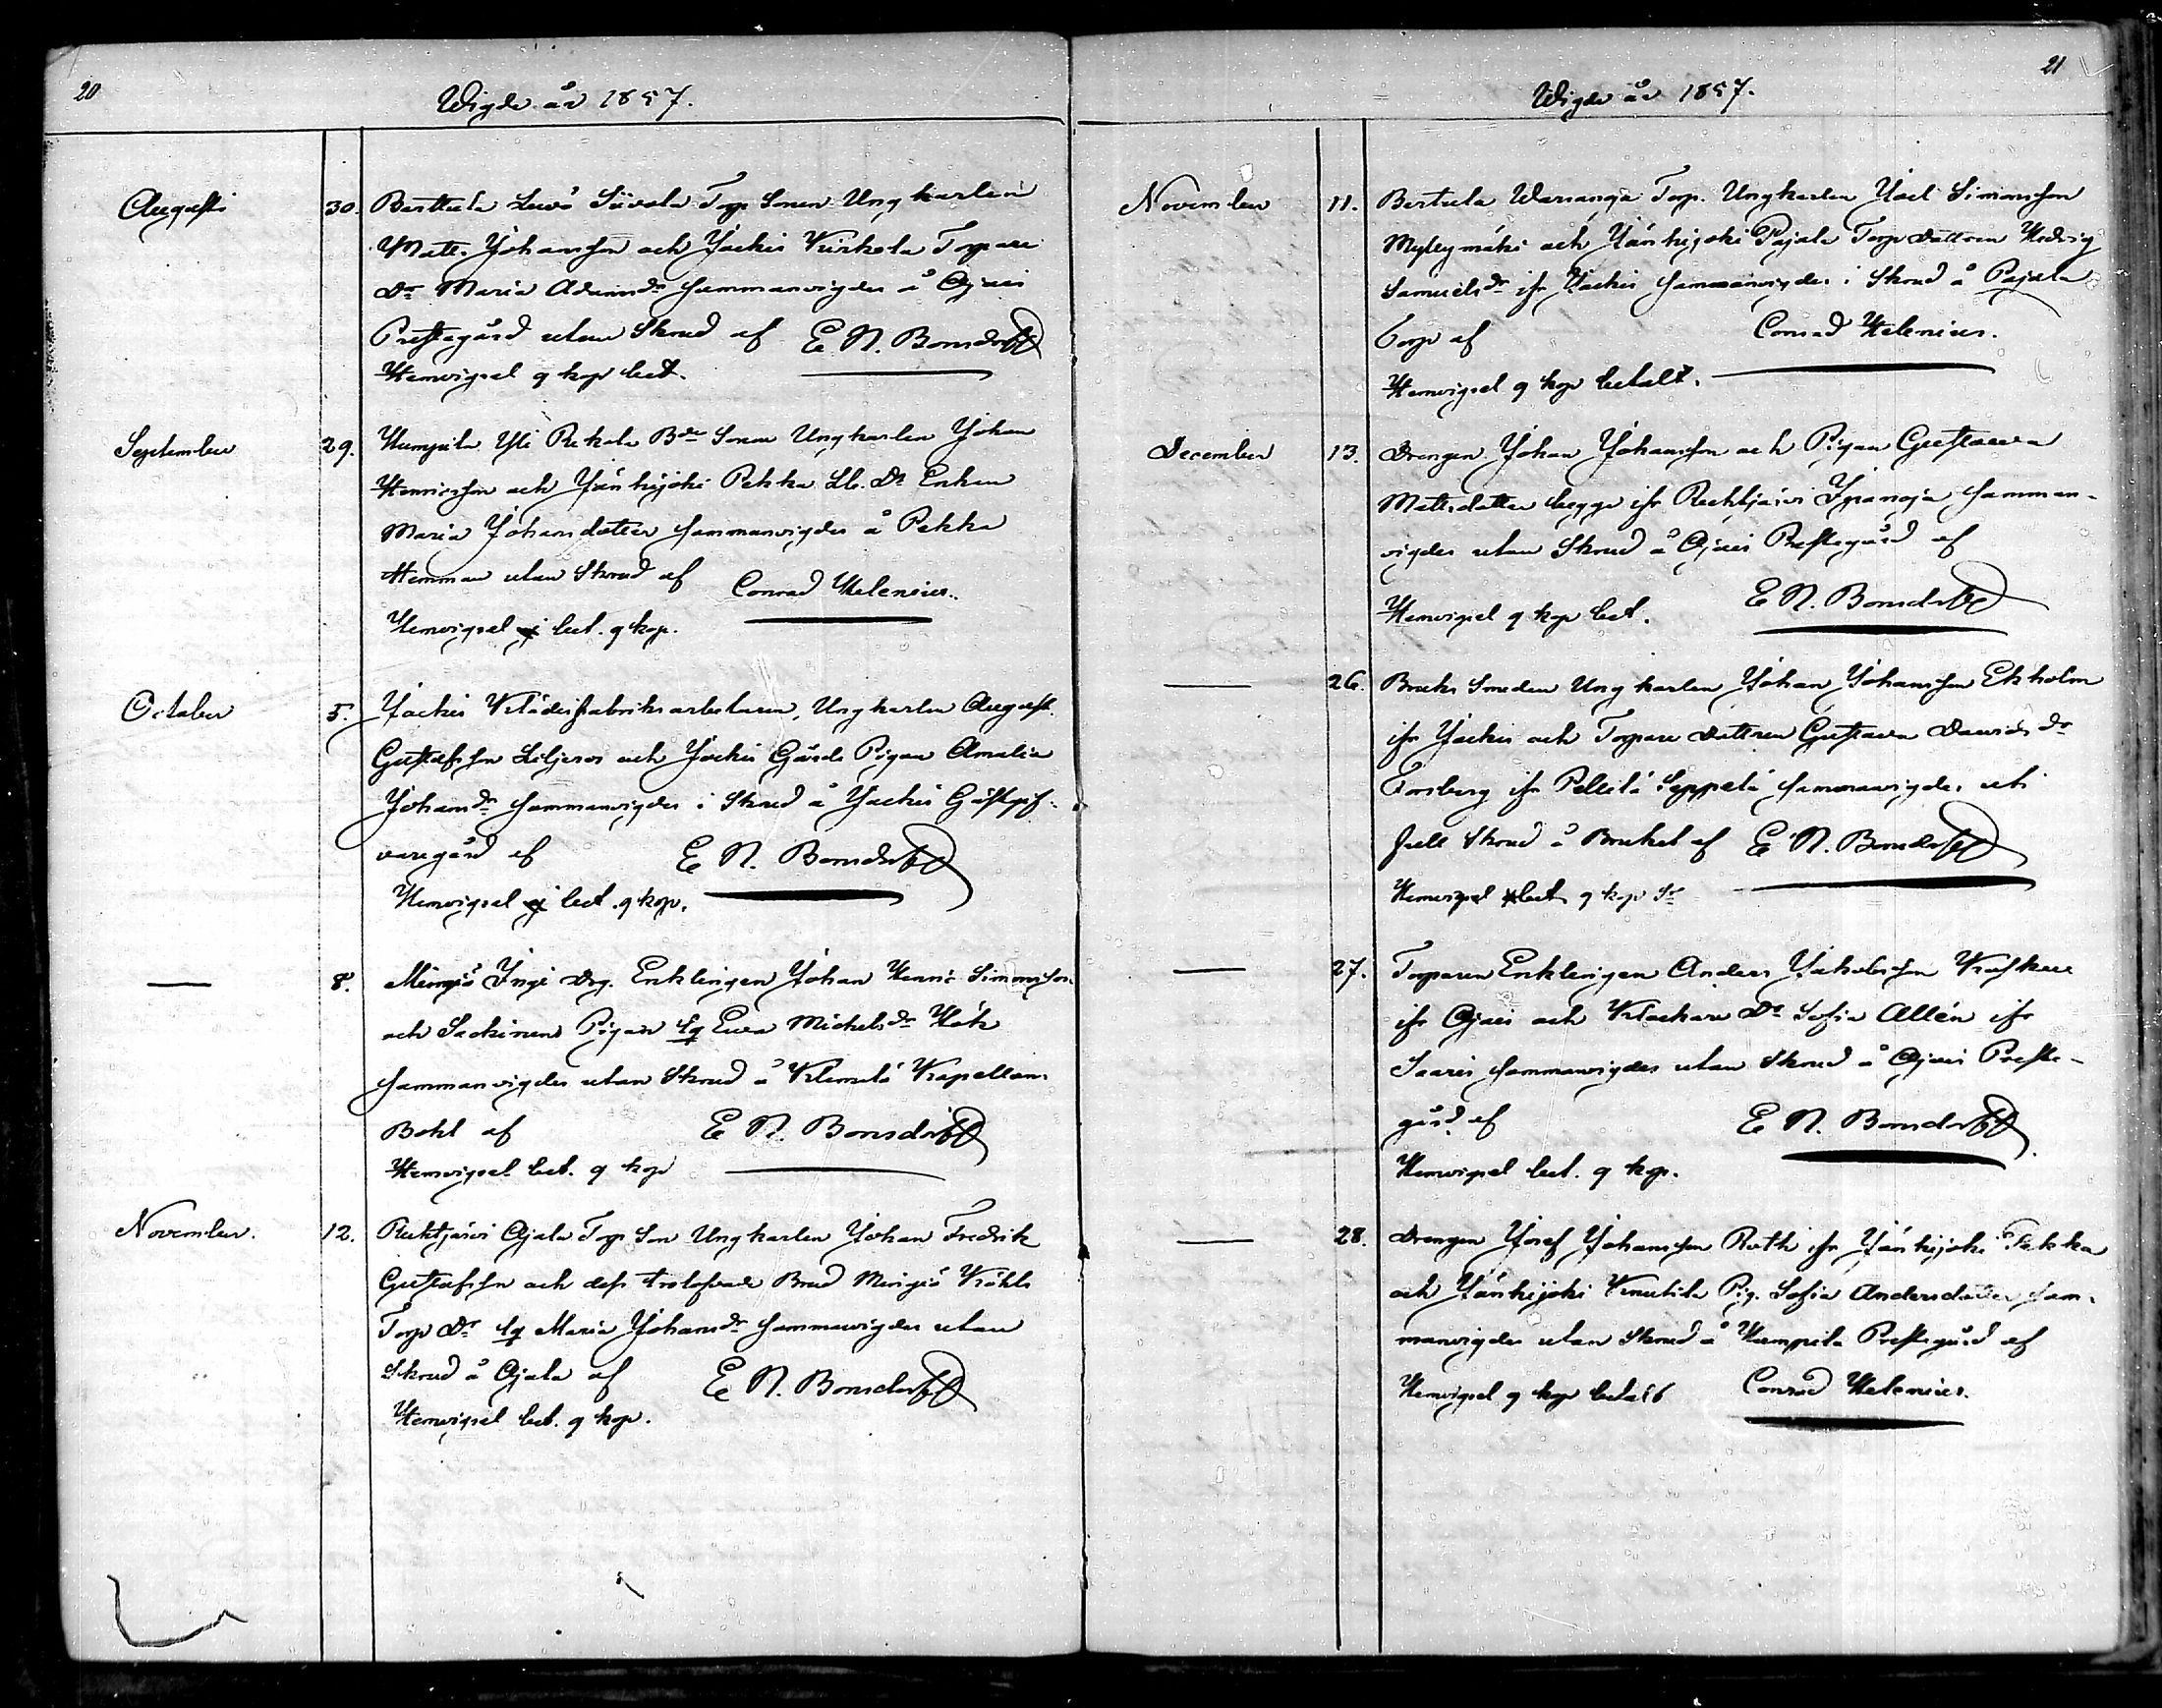 20
Wigde år 1857.
Augusti
30. Berttula Luvo Siivola Torp Sonen Ungkarlen
Matts Johansson och Jockis Kurkela Torpare
Dr Maria Adamsdr sammanvigdes å Ojais
Prestegård utan Skrud af E. N. Bonsdorff
Hemvigsel 9 kop bet.
September
29. Humpila Yli Rekola Bde Sonen Ungkarlen Johan
Henricsson och Jänhijoki Pekka Lb. Dr Enkan
Maria Johansdotter sammanvigdes å Pekka
Hemman utan Skrud af Conrad Helenius.
Hemvigsel bet. 9 kop.
October
5. Jockis Klädesfabriksarbetaren, Ungkarlen August
Gustafsson Liljeros och Jockis Gårds Pigan Amalia
Johansdr sammanvigdes i Skrud å Jockis Gästgif-
varegård af E. N. Bonsdorff
Hemvigsel bet. 9 kop.
— 8. Minjiö Inji Drg. Enklingen Johan Henric Simonsson
och Pigan Eva Michelsdr Hök
sammanvigdes utan Skrud å Klemelä Kapellans
Bohl af E. N. Bonsdorff
Hemvigsel bet. 9 kop
November.
12. Rehtijärvi Ojala Torp Son Ungkarlen Johan Fredrik
Gustafsson och dess trolofvade Brud Minjiö Kråkls
Torp Dr Maria Johansdr sammanvigdes utan
Skrud å Ojala af E. N. Bonsdorff
Hemvigsel bet. 9 kop.
21
Wigde år 1857.
November
11. Bertula Warsanoja Torp. Ungkarlen Joel Simonsson
Myllymäki och Jänhijoki Pajala Torp dottren Hedvig
Samuelsdr ifr Jockis sammanvigdes i Skrud å Pajala
torp af Conrad Helenius.
Hemvigsel 9 kop betalt.
December
13. Drengen Johan Johansson och Pigan Gustaava
Mattsdotter begge ifr Rechtijärvi Ypänoja samman-
vigdes utan Skrud å Ojais Prestegård af
Hemvigsel 9 kop bet. E. N. Bonsdorff
— 26. Bruks Smeden Ungkarlen Johan Johansson Ekholm
ifr Jockis och Torpare dottren Gustava Davidsdr
Forsberg ifr Pellilä Seppelä sammanvigdes uti
full Skrud å Bruket af E. N. Bonsdorff
Hemvigsel bet 9 kop Sr
— 27. Torparen Enklingen Anders Jakobsson Koskue
ifr Ojais och Klockare Dr Sofia Allén ifr
Saaris sammanvigdes utan Skrud å Ojais Preste-
gård af E. N. Bonsdorff
Hemvigsel bet. 9 kop.
— 28. Drengen Josef Johansson Roth ifr Jänhijoki Pekka
och Jänhijoki Knuutila Pig. Sofia Andersdotter sam-
manvigdes utan Skrud å Humppila Prestegård af
Hemvigsel 9 kop betalt Conrad Helenius.